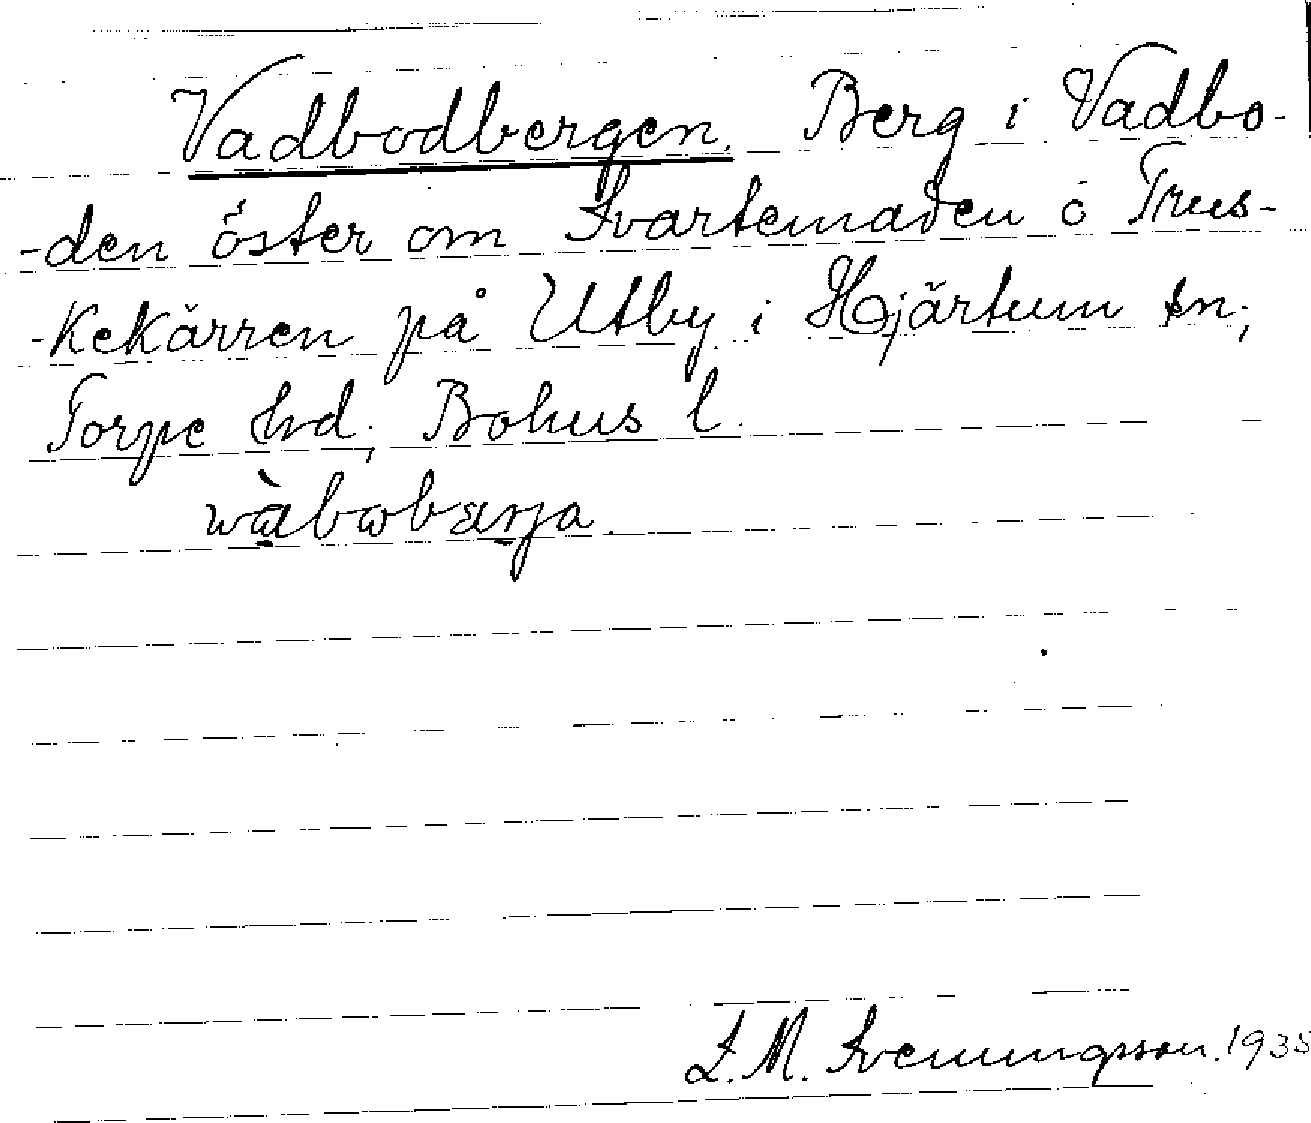 Vadbodbergen. Berg i Vadbo-
-den öster om Svartemaden o Trus-
-kekärren på Utby i Hjärtum sn;
Torpe hrd; Bohus l.
wàbωbærja.
L. M. Svenungsson. 1935